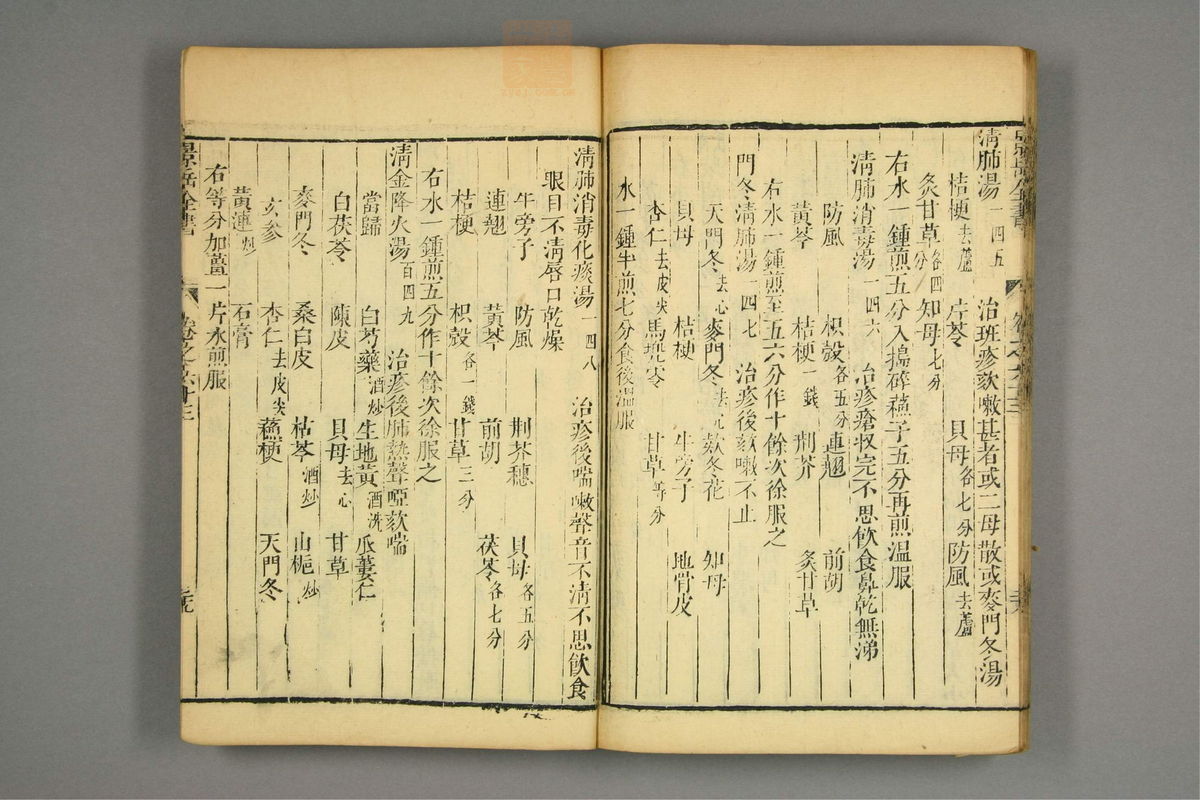 清肺湯一四五　治斑疹欬嗽甚者或二母散或麥門冬湯
桔梗去蘆　片芩　貝母各七分　防風去蘆
炙甘草各四分　知母七分
右水一鍾煎五分入搗碎蘇子五分再煎溫服
清肺消毒湯一四六　治疹瘡收完不思飲食鼻乾無涕
防風　枳殼各五分　連翹　前胡
黃芩　桔梗一錢　荆芥　炙甘草
右水一鍾煎至五六分作十餘次徐服之
門冬清肺湯一四七　治疹後欬嗽不止
天門冬去心　麥門冬去心　欸冬花　知母
貝母　桔梗　牛旁子　地骨皮
杏仁去皮尖　馬兜苓　甘草等分
水一鍾半煎七分食後溫服
清肺消毒化痰湯一四八　治疹後喘嗽聲音不清不思飲食
眼目不淸唇口乾燥
牛旁子　防風　荆芥穗　貝母各五分
連翹　黃芩　前胡　茯苓各七分
桔梗　枳殼各一錢　甘草三分
右水一鍾煎五分作十餘次徐服之
清金降火湯百四九　治疹後肺熱聲啞欬喘
當歸　白芍藥酒炒　生地黃酒洗　瓜蔞仁
白茯苓　陳皮　貝母去心　甘草
麥門冬　桑白皮　枯芩酒炒　山梔炒
玄參　杏仁去皮尖　蘇梗　天門冬
黃連炒　石膏
右等分加薑一片水煎服
景岳全書　卷之六十三